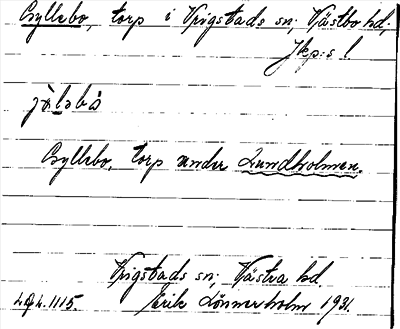 Gyllebo, torp i Vrigstads sn; Västbo hd;
Jkp:s l.
jàləbò
Gyllebo, torp under Lundholmen.
Vrigstads sn; Västra hd
Erik Lönnerholm 1931.